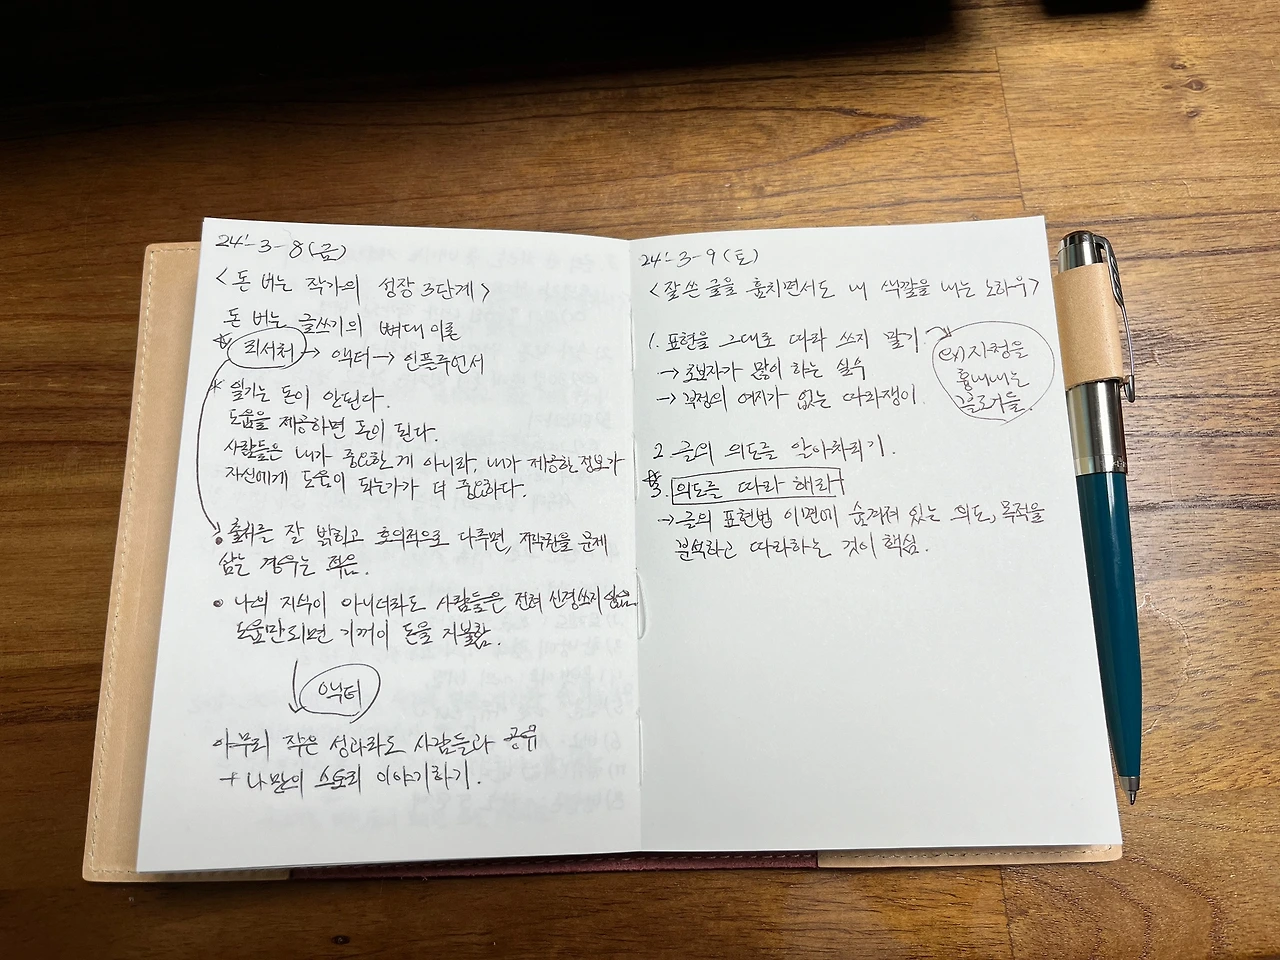 24'-3-8(금)
<돈 버는 작가의 성장 3단계>
돈 버는 글쓰기의 뼈대 이론
리서처 → 액터 → 인플루언서
* 일기는 돈이 안된다.
도움을 제공하면 돈이 된다.
사람들은 내가 중요한 게 아니라, 내가 제공한 정보가
자신에게 도움이 되는가가 더 중요하다.
! 출처를 잘 밝히고 호의적으로 다루면, 저작권을 문제
삼는 경우는 적음.
• 나의 지식이 아니더라도 사람들은 전혀 신경쓰지 않음.
도움만되면 기꺼이 돈을 지불함.
액터
아무리 작은 성과라도 사람들과 공유
+ 나만의 스토리 이야기하기.
24'-3-9(토)
<잘 쓴 글을 훔치면서도 내 색깔을 내는 노하우>
1. 표현을 그대로 따라 쓰지 말기.
→ 초보자가 많이 하는 실수
→ 걱정의 여지가 없는 따라쟁이.
ex) 자청을
흉내내는
블로거들.
2. 글의 의도를 알아차리기.
3. 의도를 따라 해라
→ 글의 표현법 이면에 숨겨져 있는 의도, 목적을
분석하고 따라하는 것이 핵심.